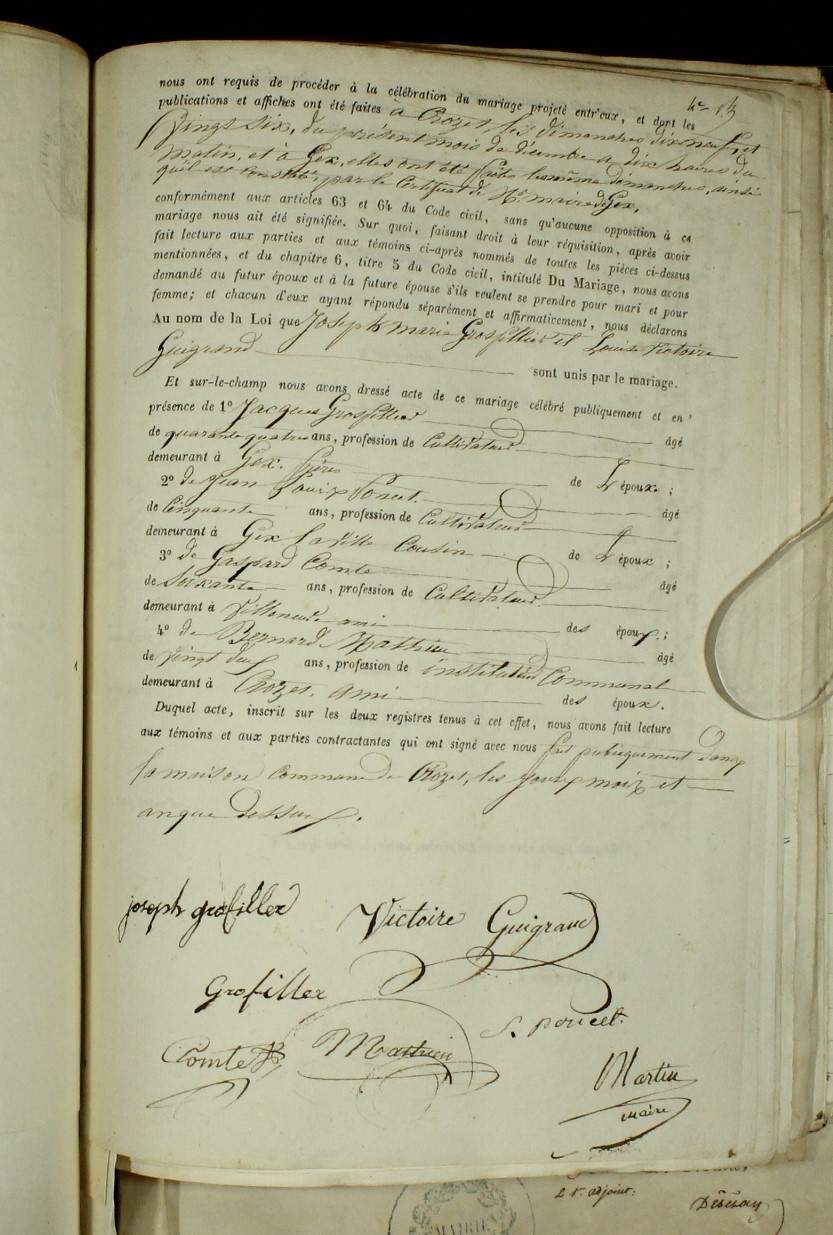 nous ont requis de procéder à la célébration du mariage projeté entr'eux, et dont les
publications et affiches ont été faites à Crozet, les dimanches dix neuf et
Vingt six, du présent mois de décembre a dix heures du
matin, et à Gex, elles ont été faites les même dimanches, ainsi
qu'il est constaté, par le Certificat de Mr. maire de Gex,
conformément aux articles 63 et 64 du Code civil, sans qu'aucune opposition à ce
mariage nous ait été signifiée. Sur quoi, faisant droit à leur réquisition, après avoir
fait lecture aux parties et aux témoins ci-après nommés de toutes les pièces ci-dessus
mentionnées, et du chapitre 6, titre 5 du Code civil, intitulé Du Mariage, nous avons
demandé au futur époux et à la future épouse s'ils veulent se prendre pour mari et pour
femme; et chacun d'eux ayant répondu séparément et affirmativement, nous déclarons
Au nom de la Loi que Joseph marie Grosfillex et Louise Victoire
Guigrand sont unis par le mariage.
Et sur-le-champ nous avons dressé acte de ce mariage célébré publiquement et en
présence de 1º Jacques Grosfillex âgé
de quarante quatre ans, profession de Cultivateur
demeurant à Gex. frère de L'époux ;
2º de Jean Louis Poncet âgé
de Cinquante ans, profession de Cultivateur
demeurant à Gex la Ville Cousin de L'époux ;
3º de Gaspard Comte âgé
de Soixante ans, profession de Cultivateur
demeurant à ami des époux ;
4º de Bernard Mathieu âgé
de vingt ans, profession de instituteur Communal
demeurant à Crozet. ami des époux.
Duquel acte, inscrit sur les deux registres tenus à cet effet, nous avons fait lecture
aux témoins et aux parties contractantes qui ont signé avec nous fait publiquement dans
la maison Commune de Crozet, les jours mois et
an que dessus.
joseph grosfillex Victoire Guigrand
Grosfillex
Poncet
Comte Mathieu
Martin
maire
adjoint
MAIRIE